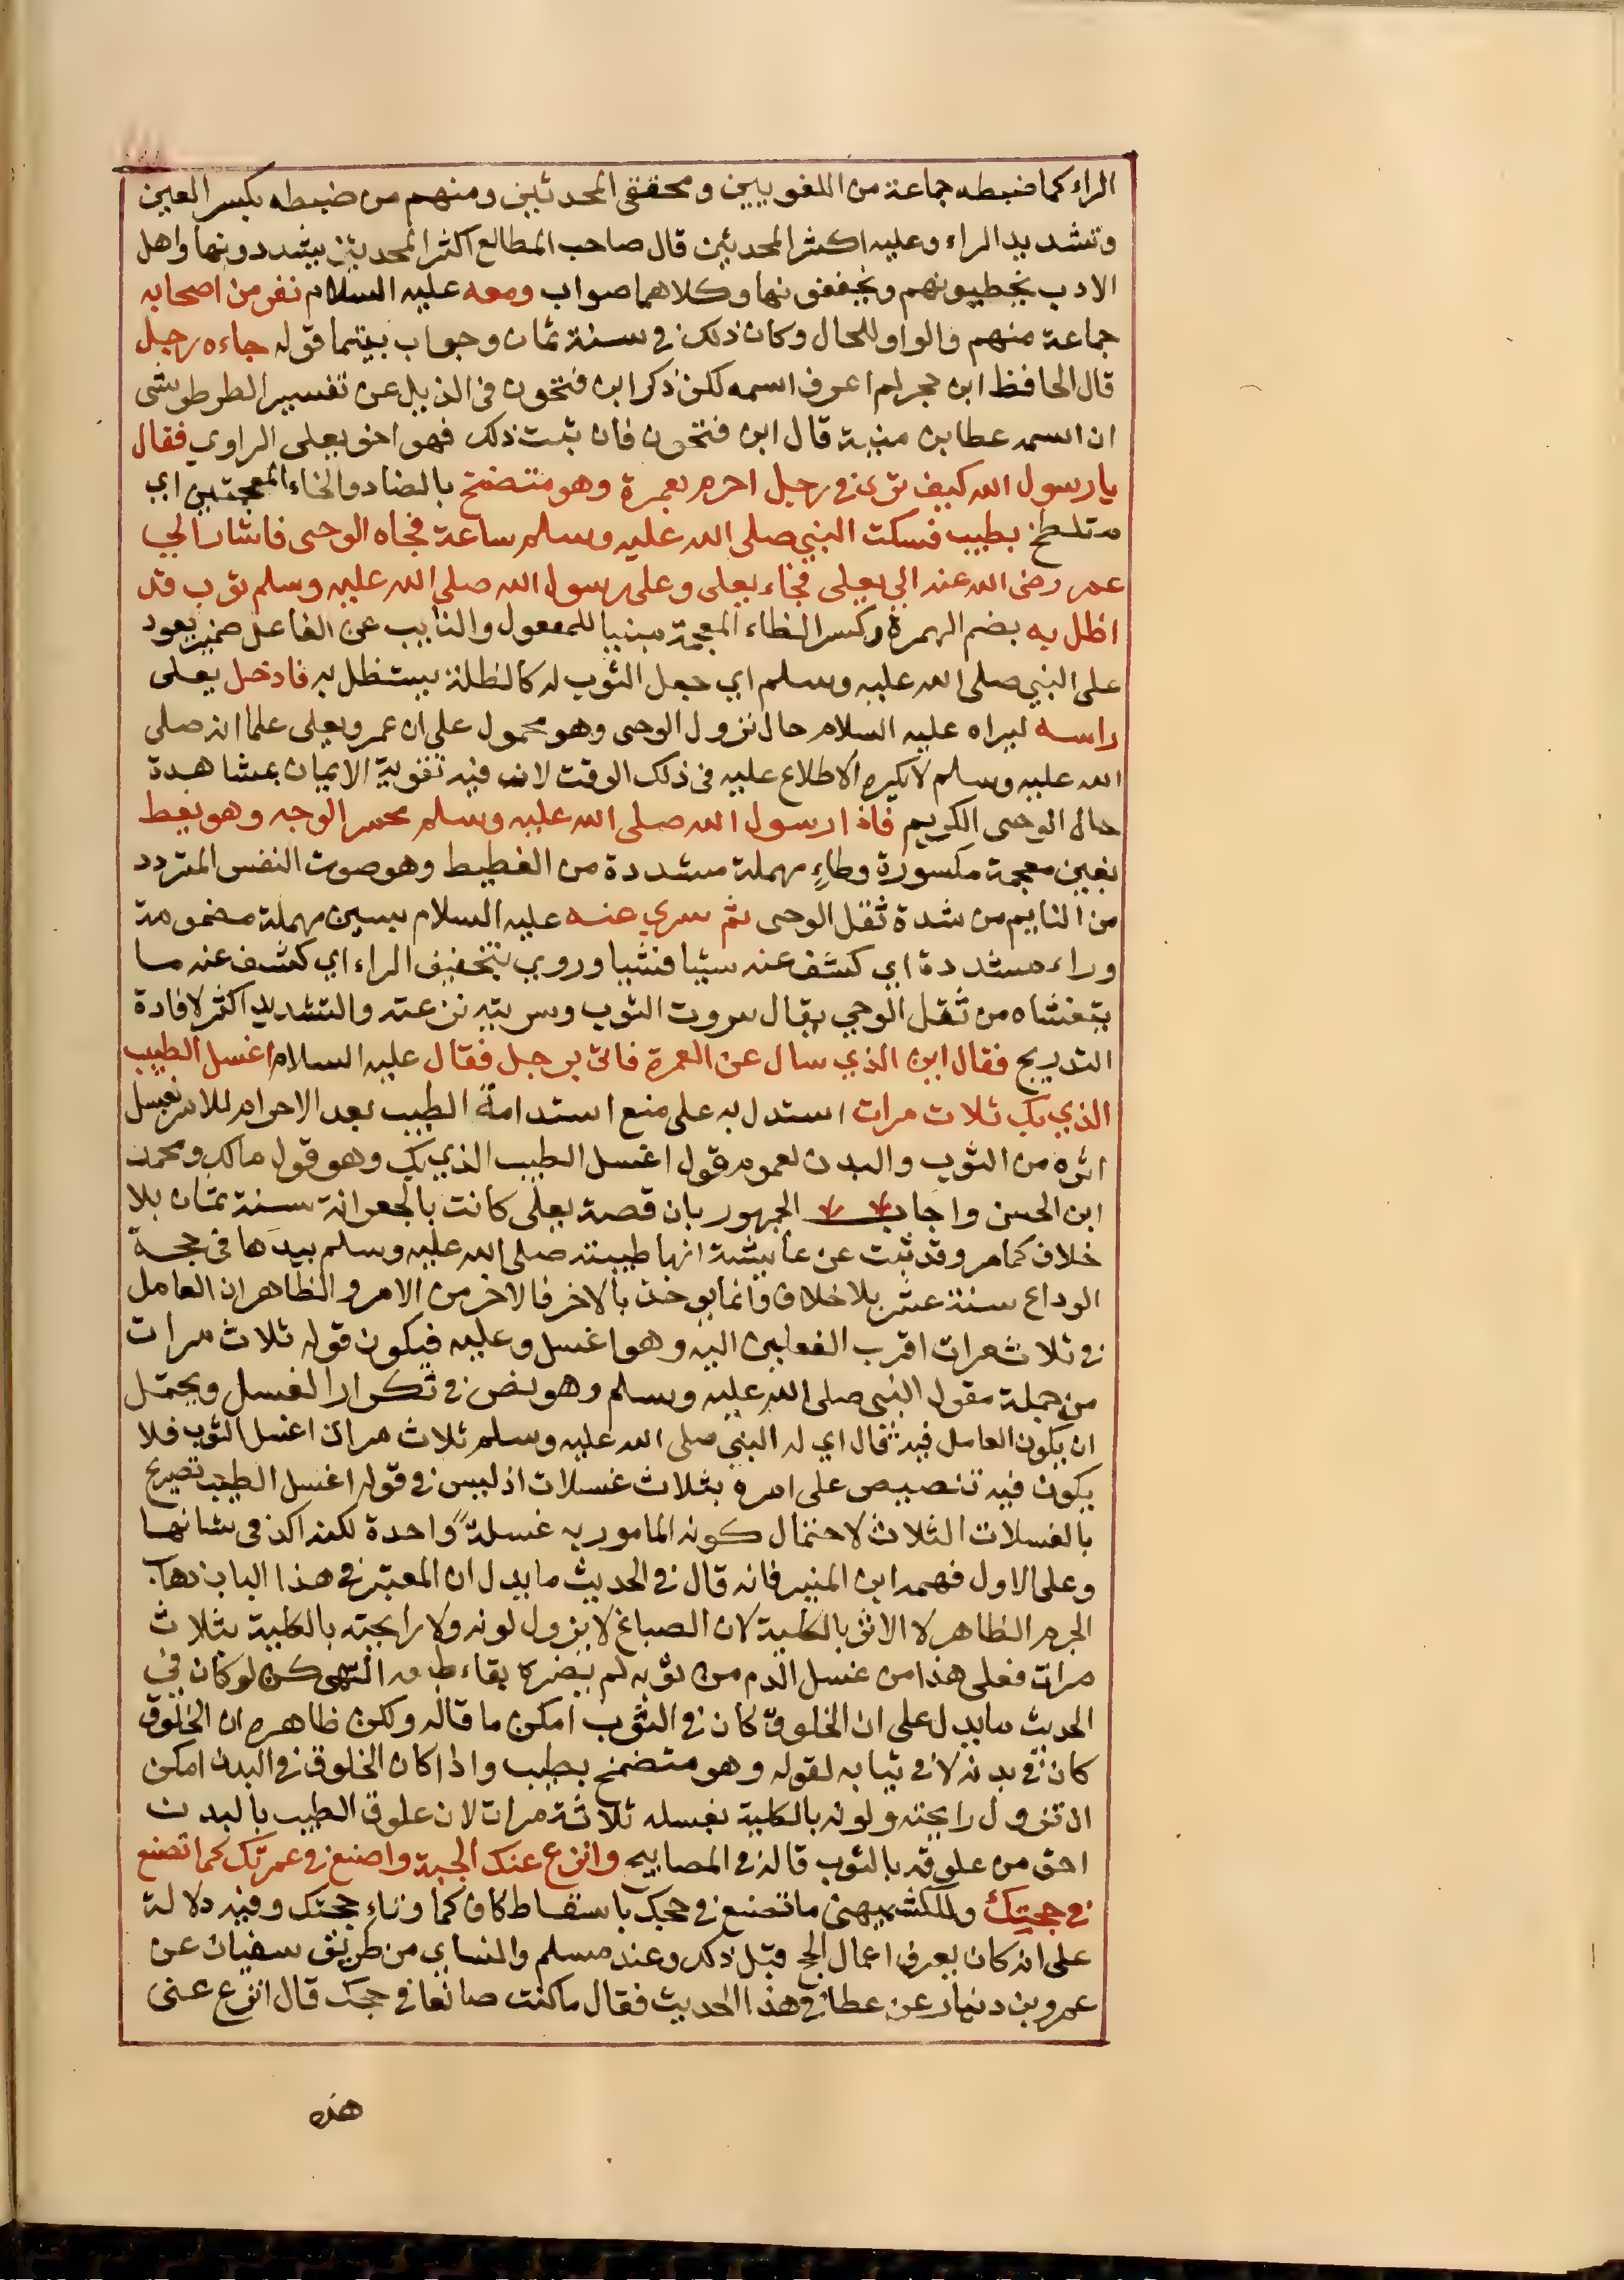 الراء كما ضبطه جماعة من اللغويين ومحققى المحدثين ومنهم من ضبطه بكسر العين
وتشديد الراء وعليه اكثر المحدثين قال صاحب المطالع اكثر المحدثين يشددونها واهل
الادب يخطيونهم ويخففونها وكلاهما صواب ومعه عليه السلام نفر من اصحابه
جماعة منهم والواو للحال وكان ذلك في سنة ثمان وجواب بينما قوله جاءه رجل
قال الحافظ ابن حجر لم اعرف اسمه لكن ذكر ابن فتحون فى الذيل عن تفسير الطرطوشى
ان اسمه عطا بن منية قال ابن فتحون فان ثبت ذلك فهو اخو يعلى الراوي فقال
يا رسول الله كيف ترى في رجل احرم بعمرة وهو متضمخ بالضاد والخاء المعجمتين اي
متلطخ بطيب فسكت النبي صلى الله عليه وسلم ساعة فجاه الوحى فاشار الي
عمر رضى الله عنه الي يعلى فجاء يعلى وعلى رسول الله صلى الله عليه وسلم ثوب قد
اظل به بضم الهمزة وكسر الظاء المعجمة مبنيا للمفعول والنايب عن الفاعل ضمير يعود
على النبي صلى الله عليه وسلم اي جعل الثوب له كالظلة يستظل به فادخل يعلى
راسه ليراه عليه السلام حال نزول الوحى وهو محمول على ان عمر ويعلى علما انه صلى
الله عليه وسلم لا يكره الاطلاع عليه فى ذلك الوقت لان فيه تقوية الايمان بمشاهدة
حال الوحى الكريم فاذا رسول الله صلى الله عليه وسلم محمر الوجه وهو يغط
بغين معجمة مكسورة وطاء مهملة مشددة من الغطيط وهو صوت النفس المتردد
من النايم من شدة ثقل الوحى ثم سري عنه عليه السلام بسين مهملة مضمومة
وراء مشددة اي كشف عنه شيئا فشيا وروي بتخفيف الراء اي كشف عنه ما
يتغشاه من ثقل الوحي يقال سروت الثوب وسريته نزعته والتشديد اكثر لافادة
التدريج فقال اين الذي سال عن العمرة فاتى برجل فقال عليه السلام اغسل الطيب
الذي بك ثلاث مرات استدل به على منع استدامة الطيب بعد الاحرام للامر بغسل
اثره من الثوب والبدن لعموم قوله اغسل الطيب الذي بك وهو قول مالك ومحمد
ابن الحسن واجاب الجمهور بان قصة يعلى كانت بالجعرانة سنة ثمان بلا
خلاف كما مر وقد ثبت عن عايشة انها طيبته صلى الله عليه وسلم بيدها فى حجة
الوداع سنة عشر بلا خلاف وانما يوخذ بالاخر فالاخر من الامر والظاهر ان العامل
في ثلاث مرات اقرب الفعلين اليه وهو اغسل وعليه فيكون قوله ثلاث مرات
من جملة مقول النبي صلى الله عليه وسلم وهو نص في تكرار الغسل ويحتمل
ان يكون العامل فيه قال اي له النبي صلى الله عليه وسلم ثلاث مرات اغسل الثوب فلا
يكون فيه تنصيص على امره بثلاث غسلات اذ ليس في قوله اغسل الطيب تصريح
بالغسلات الثلاث لاحتمال كونه المامور به غسلة واحدة لكنه اكد فى شانها
وعلى الاول فهمه ابن المنير فانه قال في الحديث ما يدل ان المعتبر في هذا الباب ذهاب
الجرم الظاهر لا الاثر بالكلية لان الصباغ لا يزول لونه ولا رايحته بالكلية بثلاث
مرات فعلى هذا من غسل الدم من ثوبه لم يضره بقاء طبعه انتهى كن لو كان في
الحديث ما يدل على ان الخلوق كان في الثوب امكن ما قاله ولكن ظاهره ان الخلوق
كان في بدنه لا في ثيابه لقوله وهو متضمخ بطيب واذا كان الخلوق في البدن امكن
ان تزول رايحته ولونه بالكلية بغسله ثلاثة مرات لان علوق الطيب بالبدن
احق من علوقه بالثوب قاله في المصابيح وانزع عنك الجبة واصنع في عمرتك كما تصنع
في حجتك وللكشميهنى ما تصنع في حجك باسقاط كاف كما وتاء حجتك وفيه دلالة
على انه كان يعرف اعمال الحج قبل ذلك وعند مسلم والنساي من طريق سفيان عن
عمرو بن دينار عن عطا في هذا الحديث فقال ما كنت صانعا في حجك قال انزع عنى
هذه